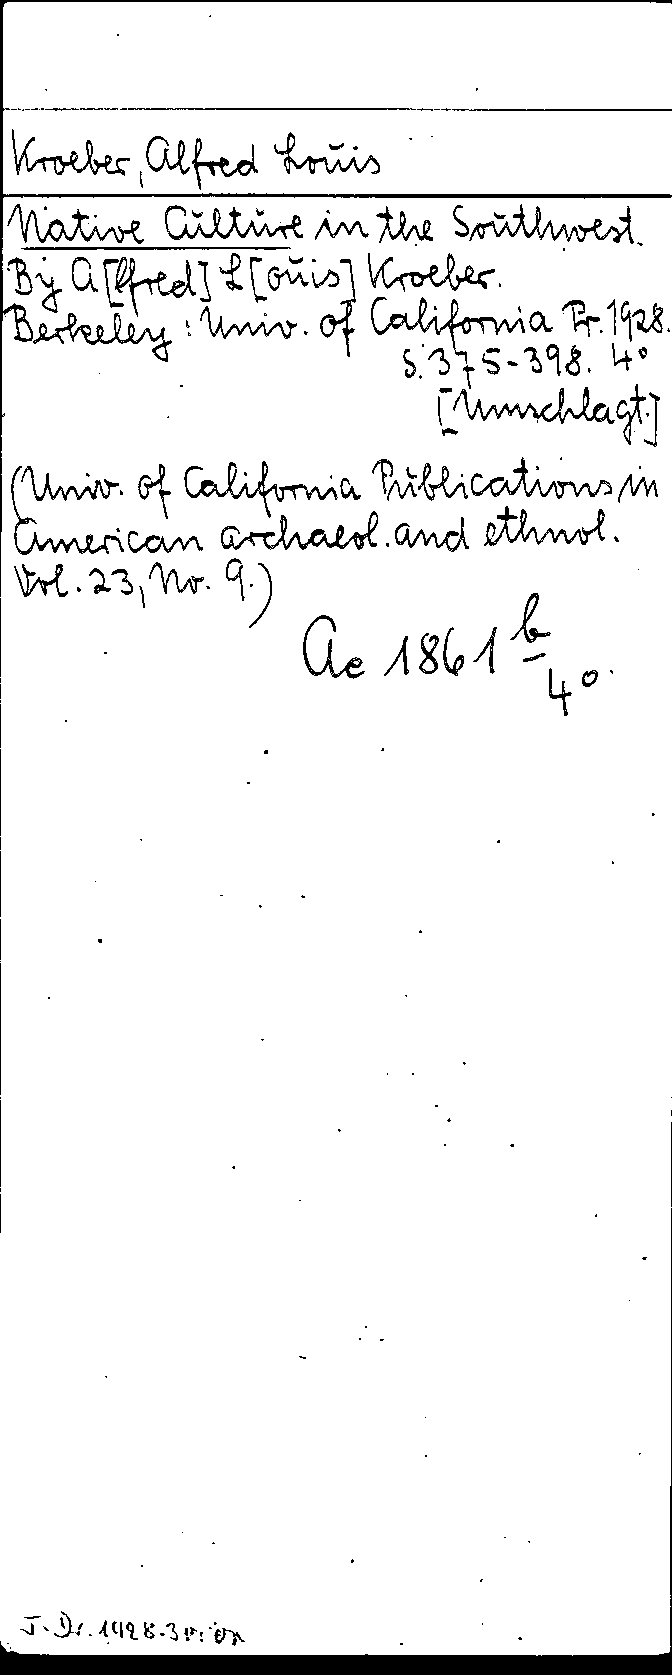 Kroeber, Alfred Louis
Native Culture in the Southwest.
By A[lfred] L[ouis] Kroeber.
Berkeley: Univ. of California Pr. 1928.
S. 375-398. 4°
[Umschlagt.]
(Univ. of California Publications in
American archaeol. and ethnol.
Vol. 23, No. 9.)
Ae 1861 b
4°.